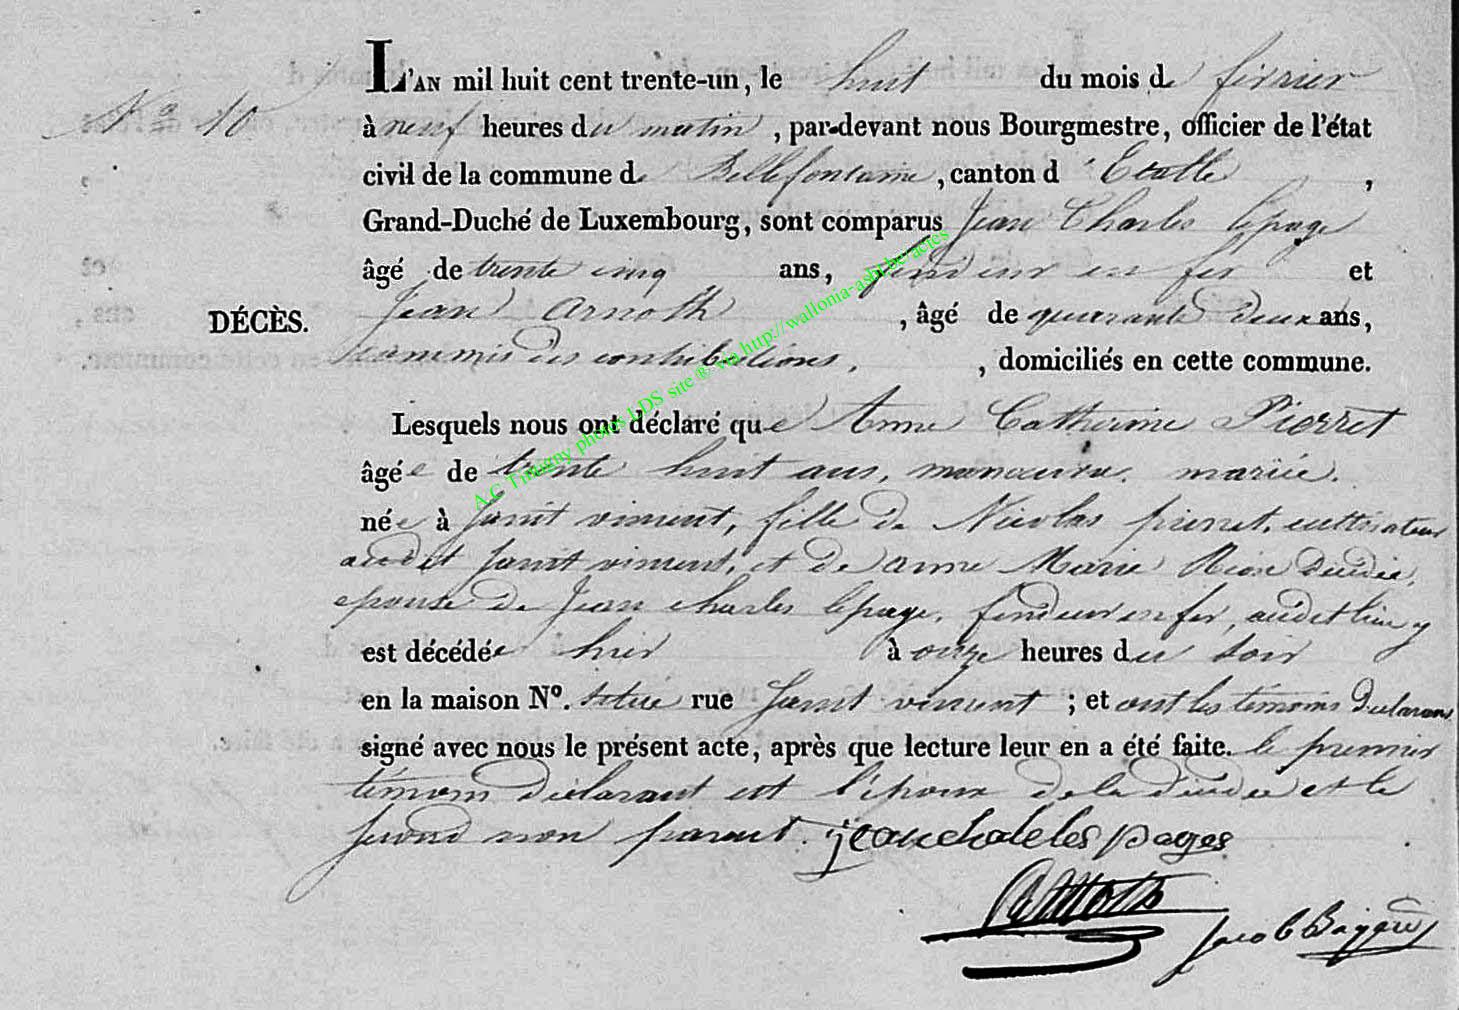 L'AN mil huit cent trente-un, le huit du mois de février
N° 10
à neuf heures du matin, par-devant nous Bourgmestre, officier de l'état
civil de la commune de Bellefontaine, canton d'Etalle,
Grand-Duché de Luxembourg, sont comparus Jean Charles lepage
âgé de trente cinq ans, fendeur en fer et
DÉCÈS.
Jean Arnoth, âgé de quarante deux ans,
commis des contributions, , domiciliés en cette commune.
Lesquels nous ont déclaré que Anne Catherine Pierret
âgée de trente huit ans, manœuvre, mariée.
née à Saint vincent, fille de Nicolas pierret, cultivateur
audit saint vincent, et de anne Marie décédée,
epouse de Jean charles lepage, fendeur en fer, audit lieu y
est décédée hier à onze heures du soir
en la maison N°. rue Saint vincent ; et ont les témoins déclarans
signé avec nous le présent acte, après que lecture leur en a été faite. le premier
témoin déclarant est l'époux de la décédée et le
second non parent. jeanchaleles pages
Arnoth
Jacob
A.C Tintigny photos LDS site ® via http://wallonia-asbl.be/actes